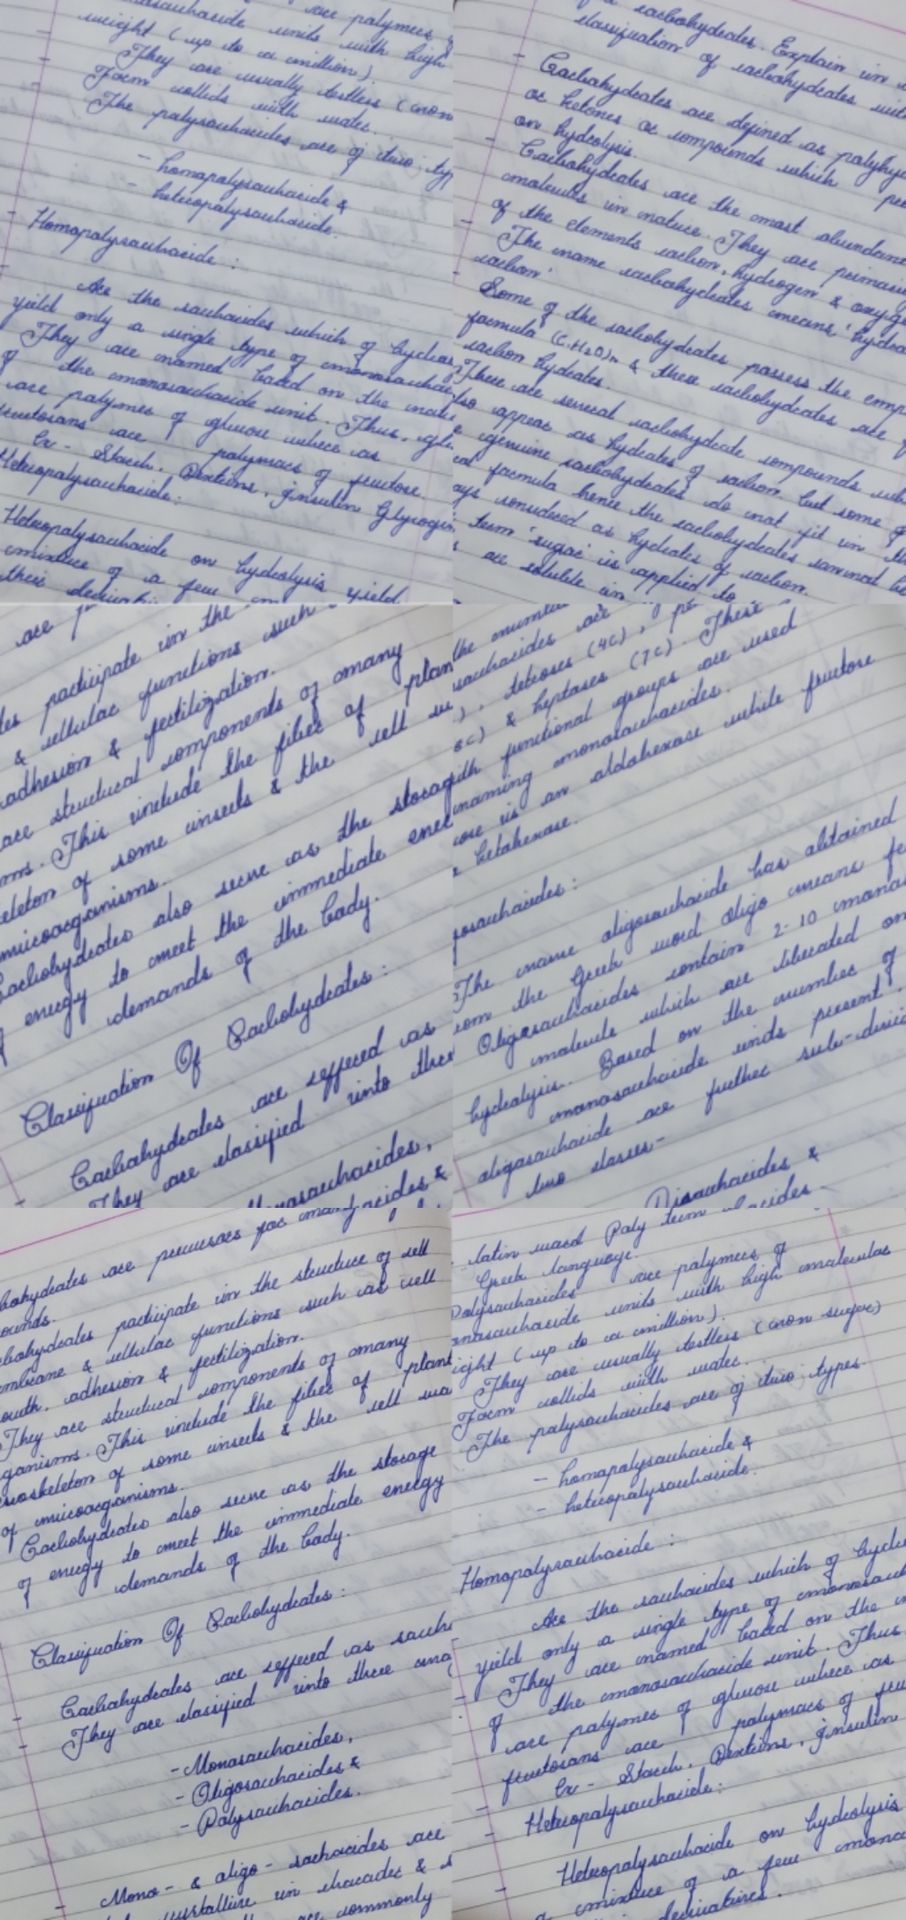 are polymers
units with high
weight (up to a million).
They are usually testless (non
Form collids with water.
The polysaccharides are of two typ
- homopolysaccharide &
- heteropolysaccharide.
Homopolysaccharide :
Are the saccharides which of
yield only a single type of
They are named based on the
of the monosaccharide unit. Thus,
are polymes of glucose where as
are polymacs of fructose.
Ex - Starch, Dextrins, Insulin Glycogen
Heteropolysaccharide :
Heteropolysaccharide on hydrolysis yield
mixture of a few
their
carbohydrates. Explain in
classification of carbohydrates with
- Carbohydrates are defined as
or ketones or compounds which
on hydrolysis.
- Carbohydrates are the most abundan
molecules in nature. They are
of the elements carbon, hydrogen & oxyg
The name carbohydrates means '
carbon'
Some of the carbohydrates possess the
formula (C.H2O)n & these carbohydrates are
carbon hydrates
There are several carbohydrate compounds
appear as hydrates of carbon, but some
genuine carbohydrates do not fit in
formula hence the carbohydrates cannot be
considered as hydrates of carbon.
term 'sugar' is applied to
are soluble in
are
participate in the
& cellular functions such
adhesion & fertilization.
are structural components of many
This include the fiber of plan
of some insects & the cell
microorganisms.
Carbohydrates also serve as the storag
energy to meet the immediate ener
demands of the body.
Classification Of Carbohydrates :
Carbohydrates are reffered as
They are classified into three
Monosaccharides,
the
saccharides are
, tetroses (4C),
& heptases (7C). These
functional groups are used
naming monosaccharides.
is an aldohexose while fructose
ketohexose.
The name oligosaccharide has obtained
the Greek word Oligo means
Oligosaccharides contain 2-10
molecule which are liberated on
hydrolysis. Based on the number of
monosaccharide units present,
oligosaccharide are further
two classes-
Disaccharides &
are precursors for
participate in the structure of cell
& cellular functions such as cell
adhesion & fertilization.
They are structural components of many
This include the fiber of plant
of some insects & the cell
of microorganisms.
Carbohydrates also serve as the storage
of energy to meet the immediate energy
demands of the body.
Classification Of Carbohydrates :
- Carbohydrates are reffered as
They are classified into three
- Monosaccharides,
- Oligosaccharides &
- Polysaccharides.
- Mono- & oligo-
in &
are commonly
latin word Poly
Greek language.
Polysaccharides are polymers of
units with high molecular
(up to a million).
They are usually testless (non sugar)
Form collids with water.
The polysaccharides are of two types.
- homopolysaccharide &
- heteropolysaccharide.
Homopolysaccharide :
Are the saccharides which of
yield only a single type of
- They are named based on the
of the monosaccharide unit. Thus
are polymes of glucose where as
fructosans are polymacs of
Ex - Starch, Dextrins, Insulin
- Heteropolysaccharide :
- Heteropolysaccharide on hydrolysis
a mixture of a few
derivatives.